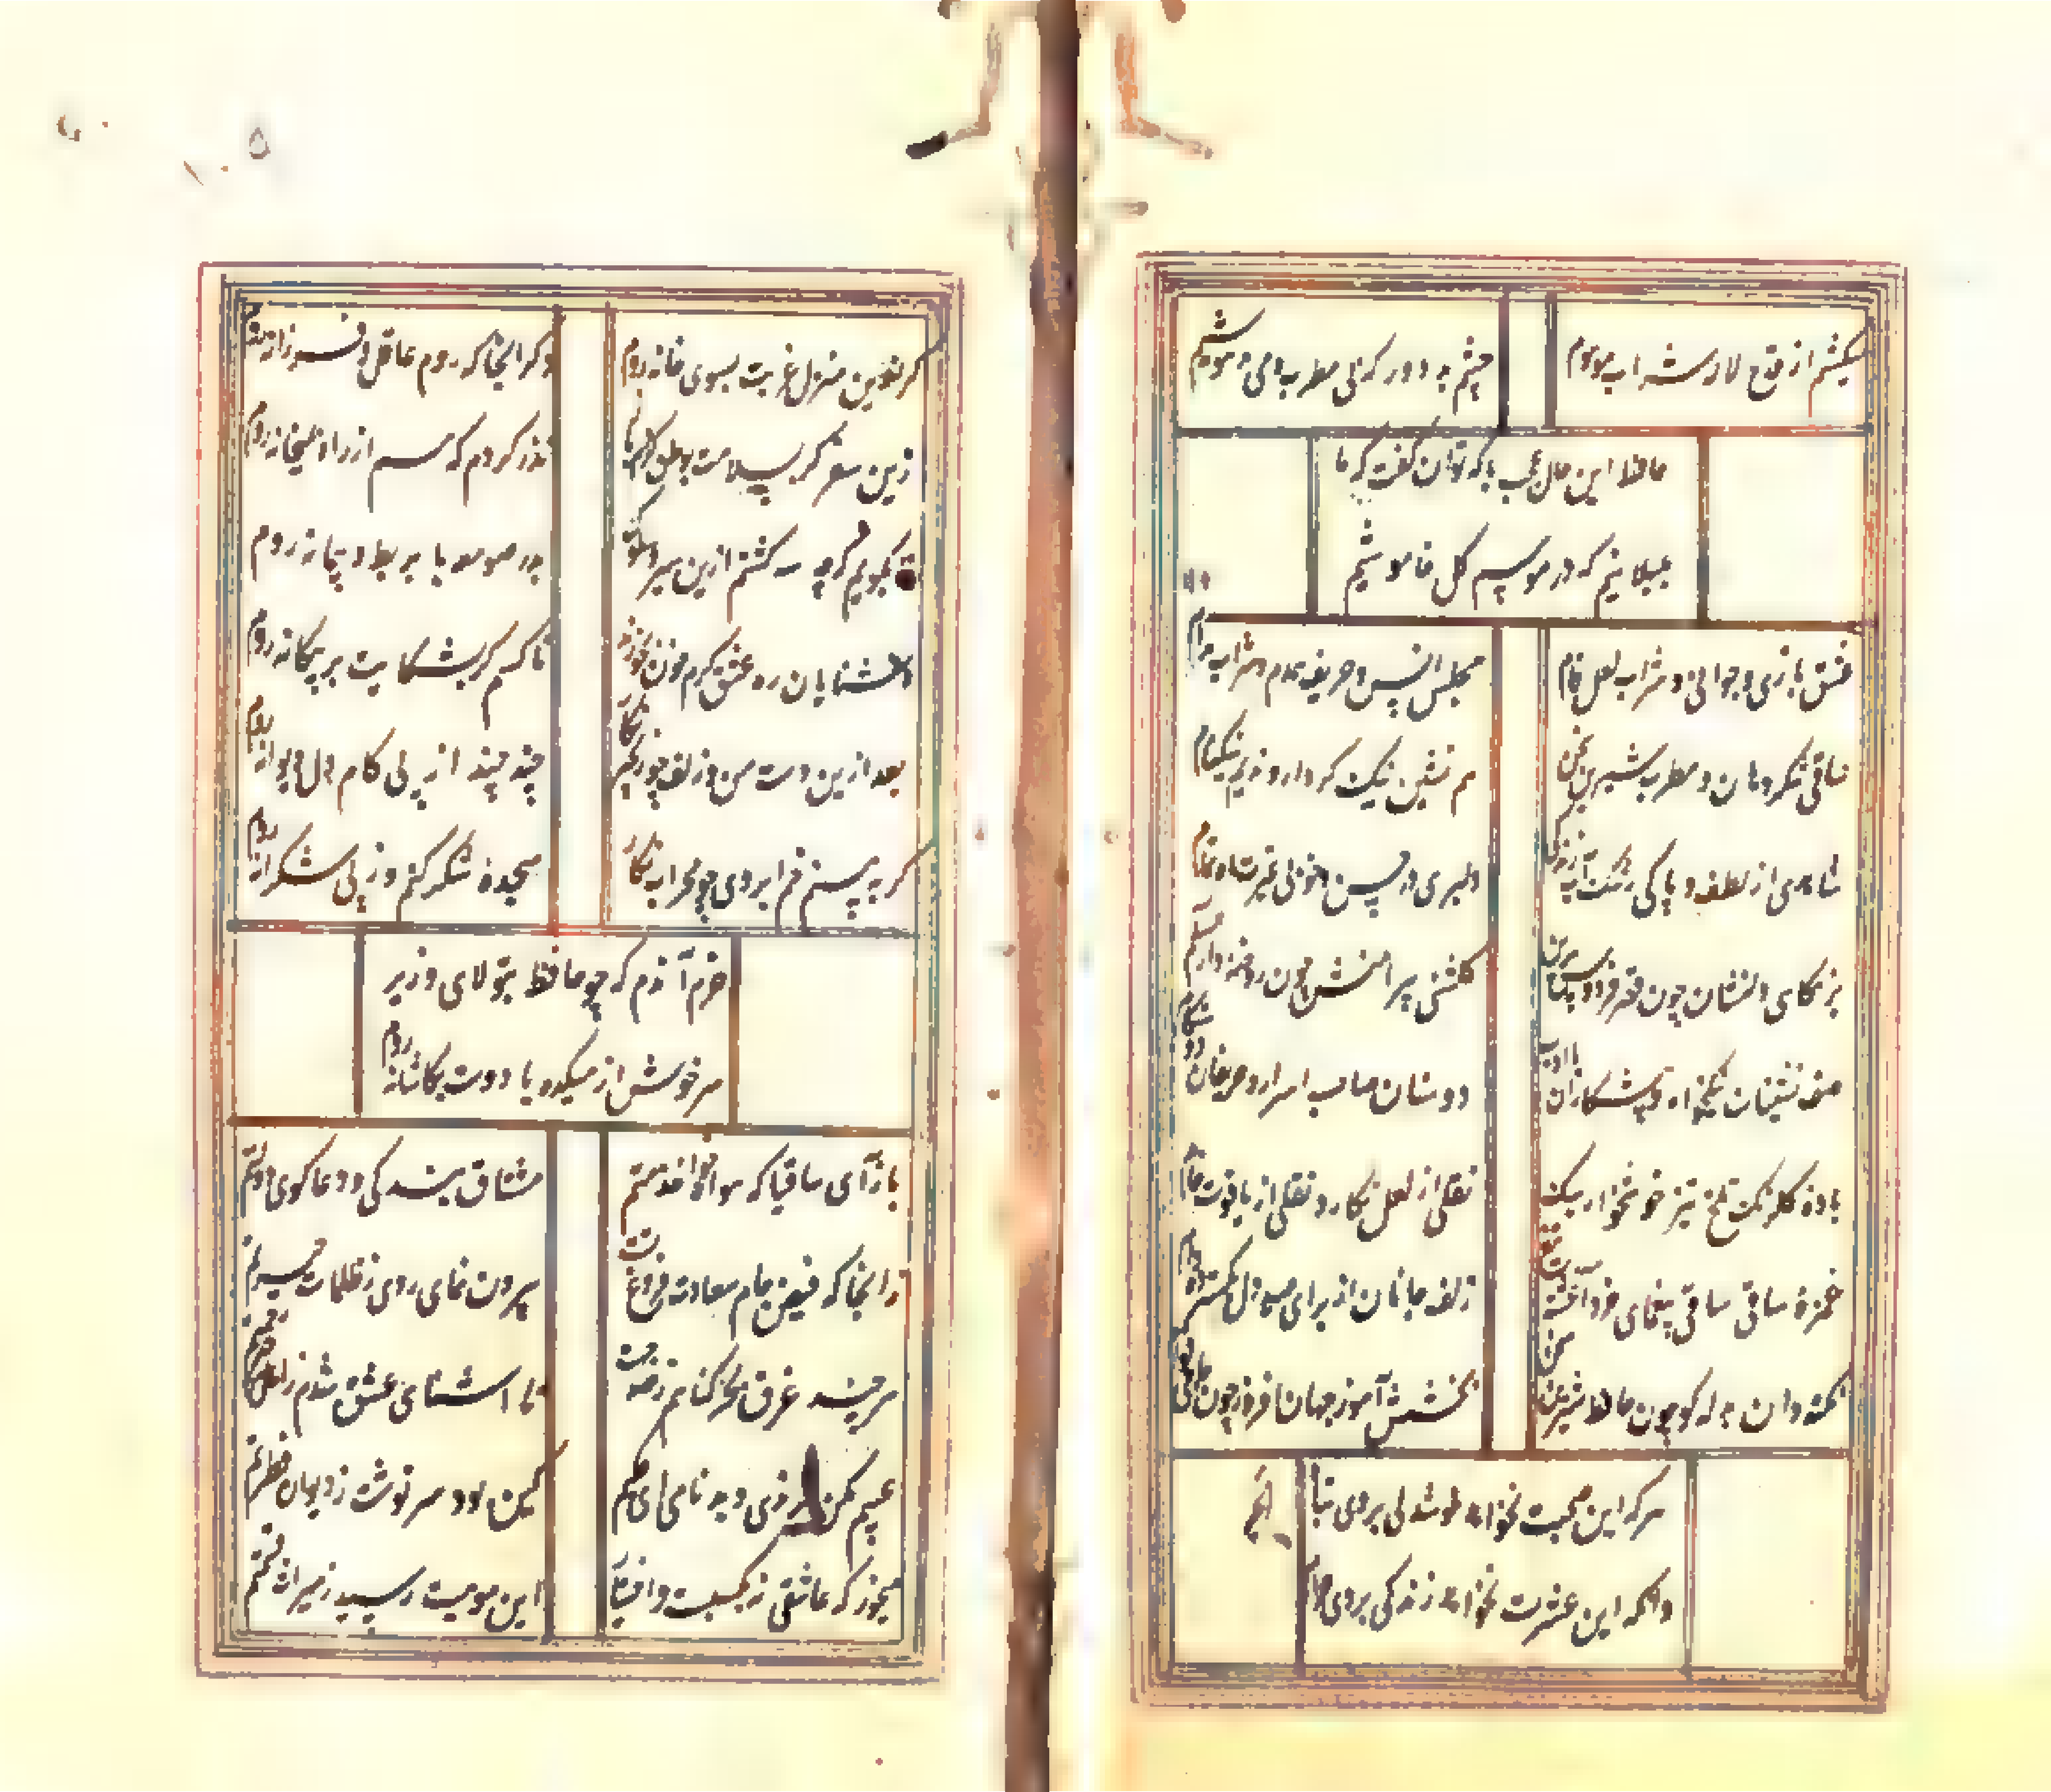 میکشیم از قدح لاله شرابی موهوم
چشم بد دور که بی مطرب و می مدهوشیم
حافظ این حال عجب با که توان گفت که ما
بلبلانیم که در موسم گل خاموشیم
عشق بازی و جوانی و شراب لعل فام
مجلس انس و حریف همدم و شراب مدام
ساقی شکر دهان و مطرب شیرین سخن
هم نشین نیک کردار و ندیم نیکنام
شاهدی از لطف و پاکی رشک آب زندگی
دلبری در حسن و خوبی غیرت ماه تمام
بزمگاهی دلنشان چون قصر فردوس برین
گلشنی پیرامنش چون روضه دارالسلام
صف نشینان نیکخواه و پیشکاران با ادب
دوستان صاحب اسرار و حریفان دوستکام
باده گلرنگ تلخ تیز خوشخوار سبک
نقلی از لعل نگار و نقلی از یاقوت خام
غمزه ساقی بیغمای خرد آهخته تیغ
زلف جانان از برای صید دل گسترده دام
نکته دان بذله گو چون حافظ شیرین سخن
بخشش آموز جهان افروز چون حاجی قوام
هر که این صحبت نخواهد خوشدلی بر وی تباه
وانکه این عشرت نخواهد زندگی بر وی حرام
گر ازین منزل غربت بسوی خانه روم
دگر آنجا که روم عاقل و فرزانه روم
زین سفر گر بسلامت بوطن باز رسم
نذر کردم که هم از راه میخانه روم
تا بگویم که چه کشفم ازین سیر و سلوک
بدر صومعه با بربط و پیمانه روم
آشنایان ره عشق گرم خون بخورند
ناکسم گر بشکایت بر بیگانه روم
بعد ازین دست من و زلف چو زنجیر نگار
چند چند از پی کام دل دیوانه روم
گر ببینم خم ابروی چو محراب نگار
سجده شکر کنم وز پی شکرانه روم
خرم آن دم که چو حافظ بتولای وزیر
سرخوش از میکده با دوست بکاشانه روم
بازآی ساقیا که هواخواه خدمتم
مشتاق بندگی و دعاگوی دولتم
زانجا که فیض جام سعادت فروغ تست
بیرون نمای روی ز ظلمات حیرتم
هر چند غرق بحر گناهم ز صد جهت
تا آشنای عشق شدم ز اهل رحمتم
عیبم مکن برندی و بدنامی ای حکیم
کین بود سرنوشت ز دیوان فطرتم
میخور که عاشقی نه بکسبست و اختیار
این موهبت رسید ز میراث فطرتم